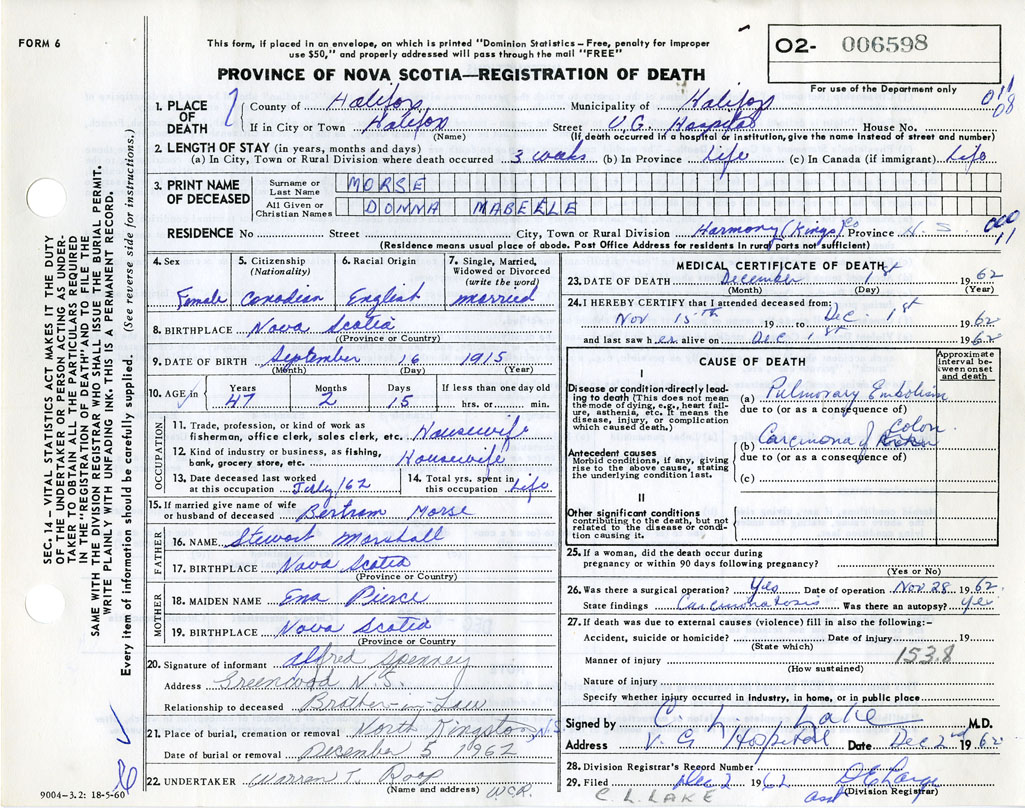 FORM 6
This form, if placed in an envelope, on which is printed "Dominion Statistics – Free, penalty for improper
use $50," and properly addressed will pass through the mail "FREE"
O2- 006598
For use of the Department only
PROVINCE OF NOVA SCOTIA—REGISTRATION OF DEATH
SEC. 14 – VITAL STATISTICS ACT MAKES IT THE DUTY
OF THE UNDERTAKER OR PERSON ACTING AS UNDER-
TAKER TO OBTAIN ALL THE PARTICULARS REQUIRED
IN THE "REGISTRATION OF DEATH" AND TO FILE THE
SAME WITH THE DIVISION REGISTRAR WHO SHALL ISSUE THE BURIAL PERMIT.
WRITE PLAINLY WITH UNFADING INK–THIS IS A PERMANENT RECORD.
Every item of information should be carefully supplied. (See reverse side for instructions.)
1. PLACE OF DEATH
County of Halifax Municipality of Halifax
If in City or Town Halifax Street V.G. Hospital House No.
(Name) (If death occurred in a hospital or institution, give the name instead of street and number)
011
08
2. LENGTH OF STAY (in years, months and days)
(a) In City, Town or Rural Division where death occurred 3 weeks (b) In Province Life (c) In Canada (if immigrant) Life
3. PRINT NAME OF DECEASED
Surname or Last Name MORSE
All Given or Christian Names DONNA MABELLE
RESIDENCE No Street City, Town or Rural Division Harmony (Kings) Co Province N.S.
(Residence means usual place of abode. Post Office Address for residents in rural parts not sufficient)
000
11
4. Sex 5. Citizenship (Nationality) 6. Racial Origin 7. Single, Married, Widowed or Divorced (write the word)
Female Canadian English married
8. BIRTHPLACE Nova Scotia
(Province or Country)
9. DATE OF BIRTH September 16 1915
(Month) (Day) (Year)
10. AGE in Years Months Days If less than one day old
47 2 15 hrs. or min.
OCCUPATION
11. Trade, profession, or kind of work as
fisherman, office clerk, sales clerk, etc. Housewife
12. Kind of industry or business, as fishing,
bank, grocery store, etc. Housewife
13. Date deceased last worked at this occupation July/62 14. Total yrs. spent in this occupation Life
15. If married give name of wife
or husband of deceased Bertram Morse
FATHER
16. NAME Stewart Marshall
17. BIRTHPLACE Nova Scotia
(Province or Country)
MOTHER
18. MAIDEN NAME Ena Pierce
19. BIRTHPLACE Nova Scotia
(Province or Country
20. Signature of informant Alfred Spenney
Address Greenwood N.S.
Relationship to deceased Brother-in-Law
21. Place of burial, cremation or removal North Kingston, N.S.
Date of burial or removal December 5 1962
22. UNDERTAKER Warren T. Roop
(Name and address) W.C.R.
9004-3.2: 18-5-60
MEDICAL CERTIFICATE OF DEATH
23. DATE OF DEATH December 1st 1962
(Month) (Day) (Year)
24. I HEREBY CERTIFY that I attended deceased from:
Nov 15th 19 to Dec. 1st 1962
and last saw her alive on Dec 1st 1962
CAUSE OF DEATH
Approximate interval between onset and death
I
Disease or condition directly lead-
ing to death (This does not mean
the mode of dying, e.g., heart failure,
asthenia, etc. It means the
disease, injury, or complication
which caused death)
(a) Pulmonary Embolism
due to (or as a consequence of)
Antecedent causes
Morbid conditions, if any, giving
rise to the above cause, stating
the underlying condition last.
(b) Carcinoma of Colon
due to (or as a consequence of)
(c)
II
Other significant conditions
contributing to the death, but not
related to the disease or condi-
tion causing it.
25. If a woman, did the death occur during
pregnancy or within 90 days following pregnancy?
(Yes or No)
26. Was there a surgical operation? Yes Date of operation Nov 28 1962
State findings Carcinomatosis Was there an autopsy? Yes
27. If death was due to external causes (violence) fill in also the following:–
Accident, suicide or homicide? Date of injury 19
(State which)
Manner of injury 153.8
(How sustained)
Nature of injury
Specify whether injury occurred in industry, in home, or in public place
Signed by C. L. Lake M.D.
Address V.G Hospital Date Dec 2nd 1962
28. Division Registrar's Record Number
29. Filed Dec 2 1962
(Division Registrar)
C. L. LAKE